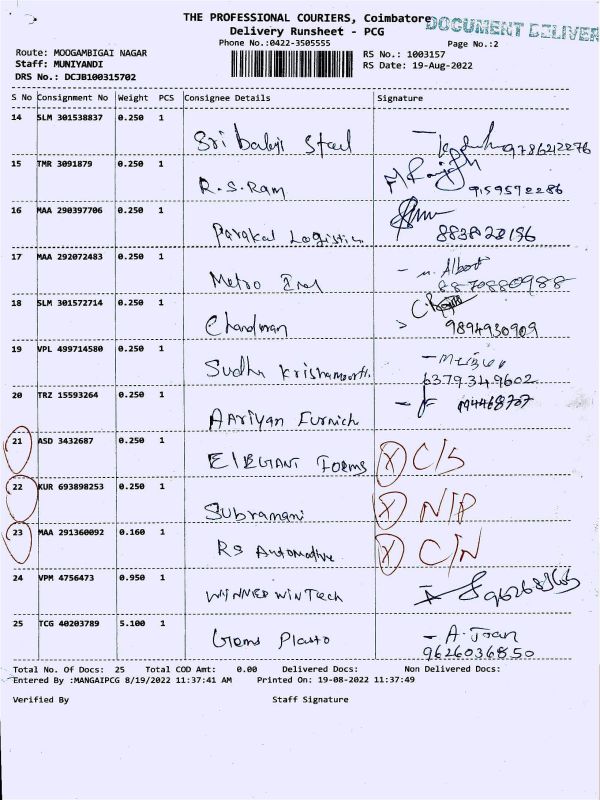 THE PROFESSIONAL COURIERS, Coimbatore
DOCUMENT DELIVER
Delivery Runsheet - PCG
Phone No.:0422-3505555
Page No.:2
Route: MOOGAMBIGAI NAGAR
RS No.: 1003157
Staff: MUNIYANDI
RS Date: 19-Aug-2022
DRS No.: DCJB100315702
S No Consignment No Weight PCS Consignee Details Signature
14 SLM 301538837 0.250 1
Sri balaji Steel 9786212276
15 TMR 3091879 0.250 1
R.S.Ram 9159592286
16 MAA 290397706 0.250 1
Parakal Logistics 8838120196
17 MAA 292072483 0.250 1
Metro - M. Albert
8870880988
18 SLM 301572714 0.250 1
Chandman 9894930909
19 VPL 499714580 0.250 1
Sudha
6379349602
20 TRZ 15593264 0.250 1
Aariyan Furnich
21 ASD 3432687 0.250 1
ElEGANT Foems X C/S
22 KUR 693898253 0.250 1
Subramani X N/P
23 MAA 291360092 0.160 1
RS Automotive X C/N
24 VPM 4756473 0.950 1
WINNER WINTech
25 TCG 40203789 5.100 1
Gems Plasto - A. Jran
9626036850
Total No. Of Docs: 25 Total COD Amt: 0.00 Delivered Docs: Non Delivered Docs:
Entered By :MANGAIPCG 8/19/2022 11:37:41 AM Printed On: 19-08-2022 11:37:49
Verified By Staff Signature